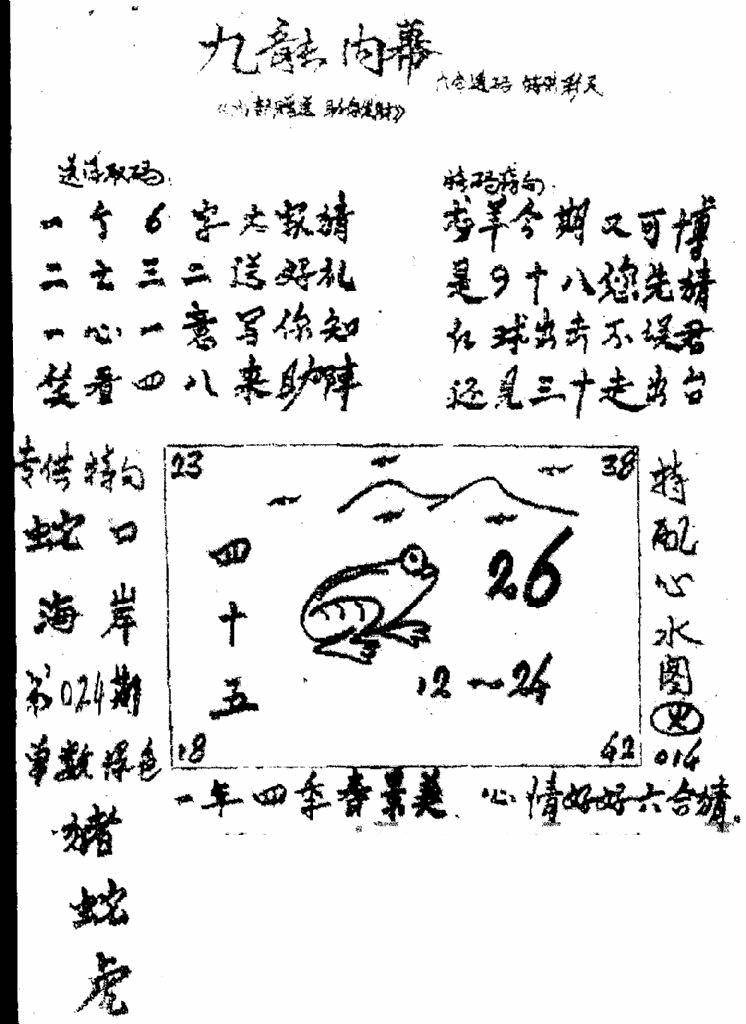 九龍内幕
送诗取码
一个6字大家猜
二七三二送好礼
一心一意写你知
笑看四八来助阵
特码诗句
梦羊今期又可博
是9十八您先猜
红球出击不误君
还见三十走出台
专供特句
蛇口
海岸
第024期
单数绿色
猪
蛇
虎
23
38
四十五
26
12~24
18
42
特配心水图
014
一年四季春景美 心情好好六合猜。